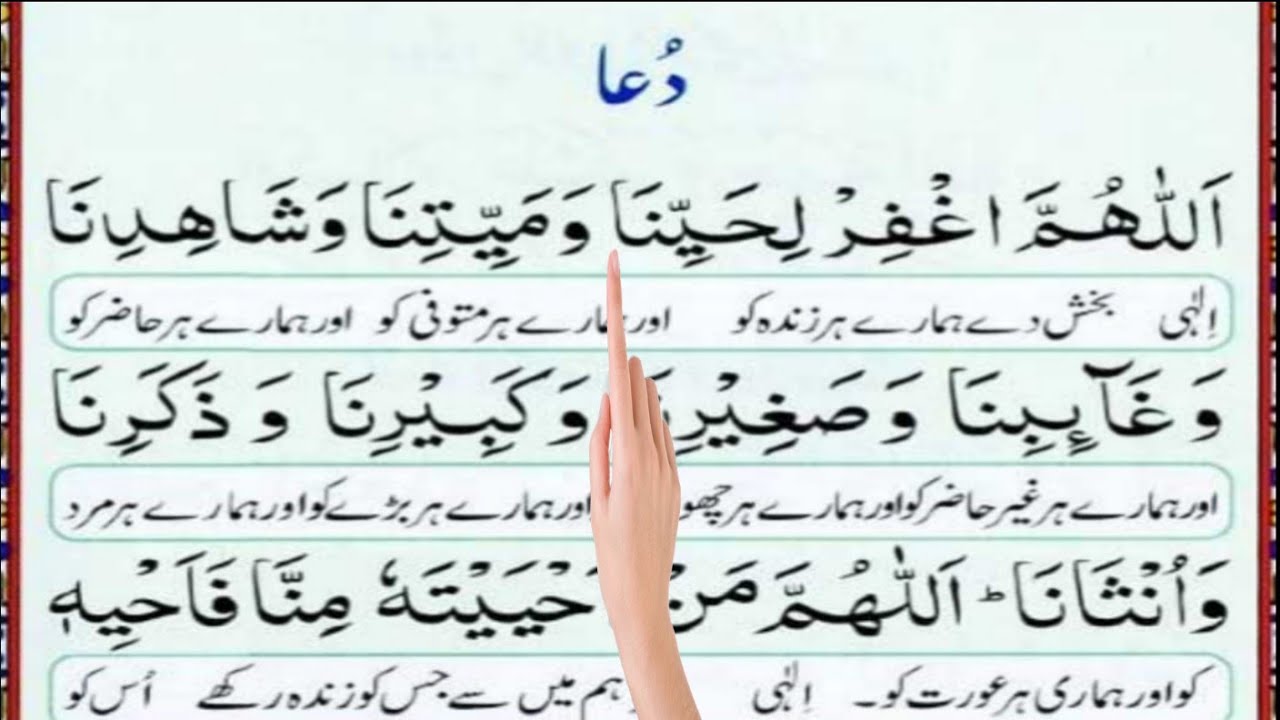 دُعا
اَللّٰهُمَّ اغْفِرْ لِحَيِّنَا وَمَيِّتِنَا وَشَاهِدِنَا
اِلٰہی بخش دے ہمارے ہر زندہ کو اور ہمارے ہر متوفی کو اور ہمارے ہر حاضر کو
وَغَآئِبِنَا وَصَغِيْرِنَا وَكَبِيْرِنَا وَذَكَرِنَا
اور ہمارے ہر غیر حاضر کو اور ہمارے ہر اور ہمارے ہر بڑے کو اور ہمارے ہر مرد
وَاُنْثَانَاؕ اَللّٰهُمَّ مَنْ اَحْيَيْتَهٗ مِنَّا فَاَحْيِهٖ
کو اور ہماری ہر عورت کو۔ اِلٰہی ہم میں سے جس کو زندہ رکھے اُس کو